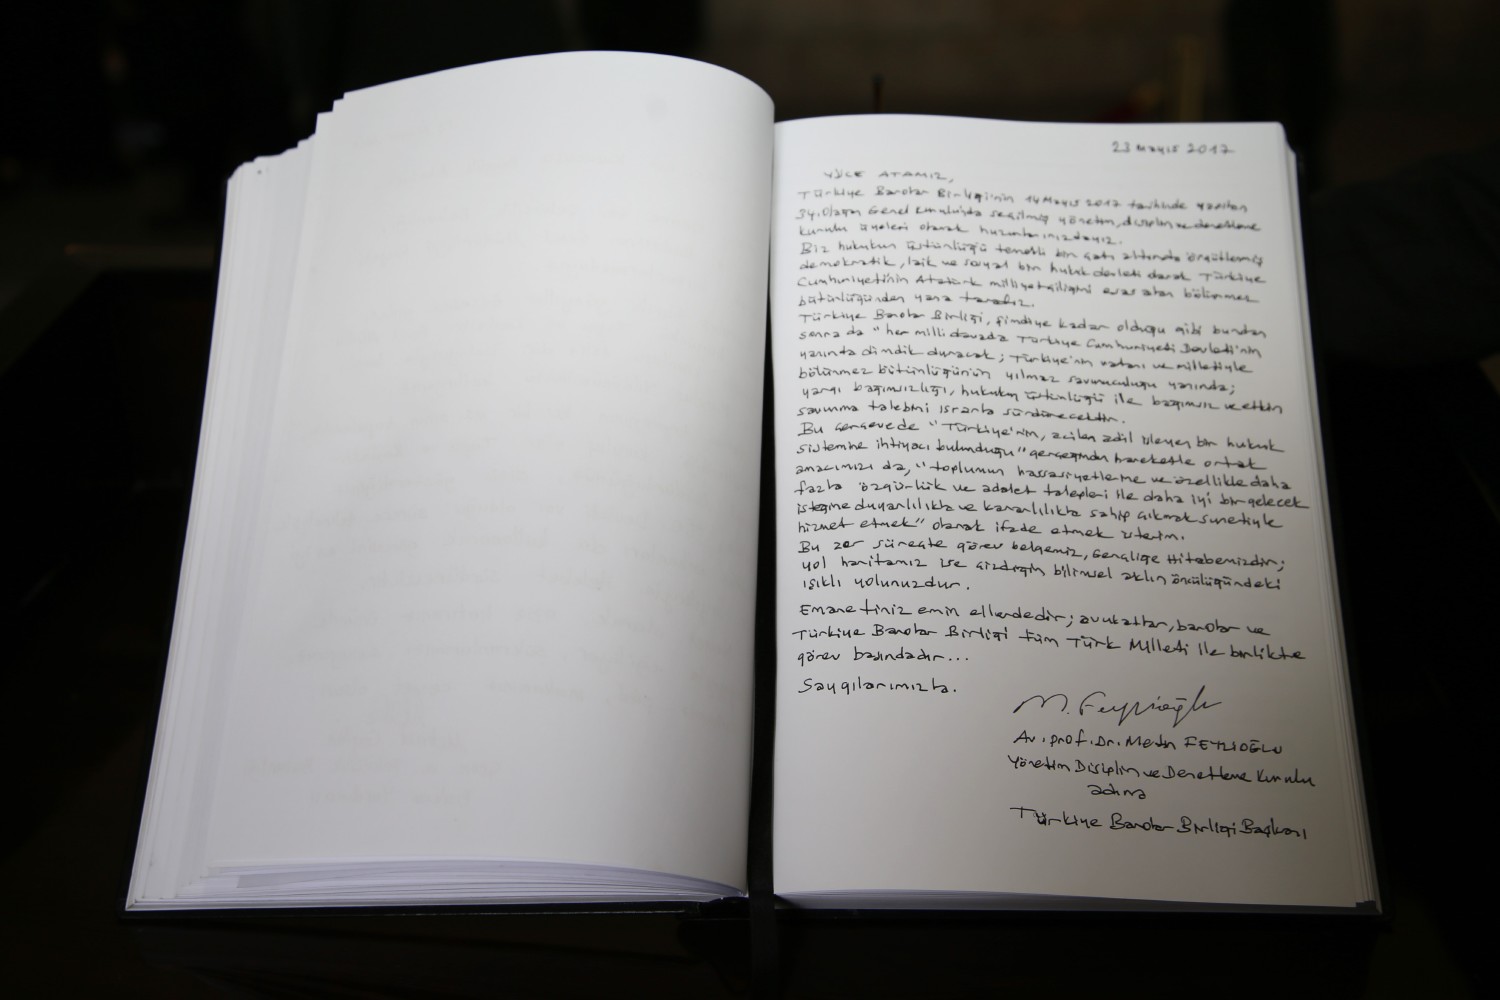 23 Mayıs 2017
YÜCE ATAMIZ,
Türkiye Barolar Birliği'nin 14 Mayıs 2017 tarihinde yapılan
34. Olağan Genel Kurulu'nda seçilmiş yönetim, disiplin ve denetleme
kurulu üyeleri olarak huzurlarınızdayız.
Biz hukukun üstünlüğü temelli bir çatı altında örgütlenmiş
demokratik, laik ve sosyal bir hukuk devleti olarak Türkiye
Cumhuriyeti'nin Atatürk milliyetçiliğini esas alan bölünmez
bütünlüğünden yana tarafız.
Türkiye Barolar Birliği, şimdiye kadar olduğu gibi bundan
sonra da "her milli davada Türkiye Cumhuriyeti Devleti'nin
yanında dimdik duracak; Türkiye'nin vatanı ve milletiyle
bölünmez bütünlüğünün yılmaz savunuculuğu yanında;
yargı bağımsızlığı, hukukun üstünlüğü ile bağımsız ve etkin
savunma talebini ısrarla sürdürecektir.
Bu çerçevede "Türkiye'nin, acilen adil işleyen bir hukuk
sistemine ihtiyacı bulunduğu" gerçeğinden hareketle ortak
amacımızı da, "toplumun hassasiyetlerine ve özellikle daha
fazla özgürlük ve adalet talepleri ile daha iyi bir gelecek
isteğine duyarlılıkla ve kararlılıkla sahip çıkmak suretiyle
hizmet etmek" olarak ifade etmek isterim.
Bu zor süreçte görev belgemiz, Gençliğe Hitabemizdir;
yol haritamız ise çizdiğin bilimsel aklın öncülüğündeki
ışıklı yolunuzdur.
Emanetiniz emin ellerdedir; avukatlar, barolar ve
Türkiye Barolar Birliği tüm Türk Milleti ile birlikte
görev başındadır...
Saygılarımızla.
M. Feyzioğlu
Av. Prof. Dr. Metin FEYZİOĞLU
Yönetim Disiplin ve Denetleme Kurulu
adına
Türkiye Barolar Birliği Başkanı